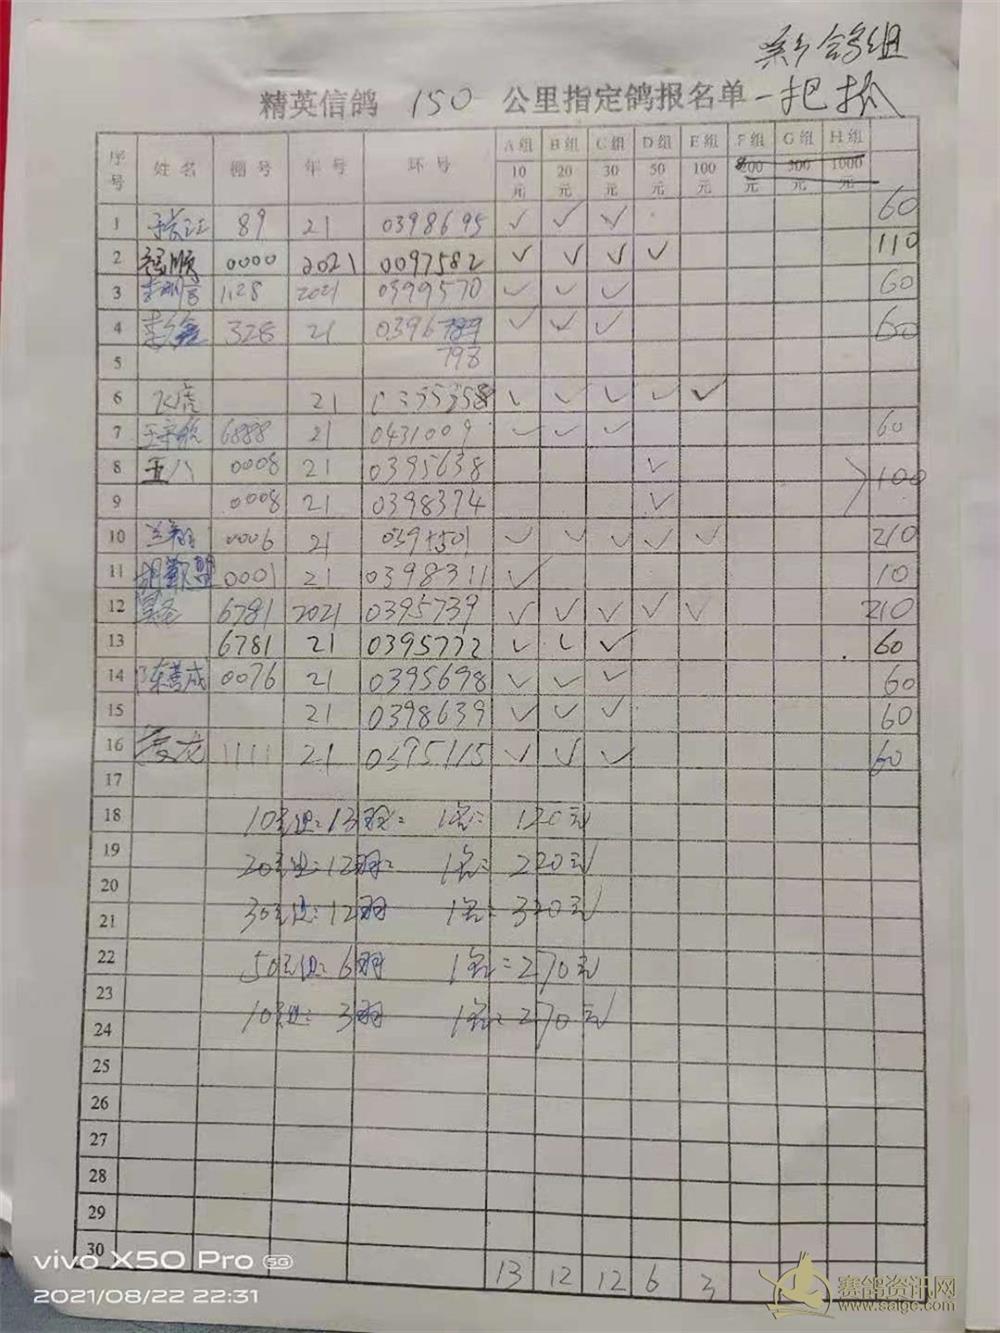 新鸽组
精英信鸽 150 公里指定鸽报名单 一把抓
序号 姓名 棚号 年号 环号 A组 B组 C组 D组 E组 F组 G组 H组
10元 20元 30元 50元 100元 500元 1000元
1 89 21 0398695 ✓ ✓ ✓ 60
2 0000 2021 0097582 ✓ ✓ ✓ ✓ 110
3 1128 2021 0399570 ✓ ✓ ✓ 60
4 328 21 0396 ✓ ✓ ✓ 60
5 798
6 飞虎 21 ✓ ✓ ✓ ✓ ✓
7 6888 21 0431009 ✓ ✓ ✓ 60
8 五八 0008 21 0395638 ✓ 100
9 0008 21 0398374 ✓
10 兰翔 0006 21 ✓ ✓ ✓ ✓ ✓ 210
11 0001 21 0398311 ✓ 10
12 6781 2021 0395739 ✓ ✓ ✓ ✓ ✓ 210
13 6781 21 0395772 ✓ ✓ ✓ 60
14 陈善成 0076 21 0395698 ✓ ✓ ✓ 60
15 21 0398639 ✓ ✓ ✓ 60
16 1111 21 0395115 ✓ ✓ ✓ 60
17
18 10元组: 13羽: 1名: 120元
19 20元组: 12羽: 1名: 220元
20
21 30元组: 12羽 1名: 320元
22 50元组: 6羽 1名: 270元
23
24 10元组: 3羽 1名: 270元
25
26
27
28
29
30
13 12 12 6 3
vivo X50 Pro 5G
2021/08/22 22:31
赛鸽资讯网
www.saigc.com